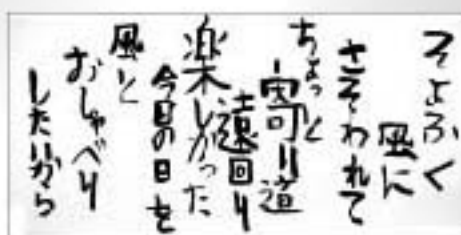 そよふく
風に
さそわれて
ちょっと
寄り道
遠回り
楽しかった
今日の日を
風と
おしゃべり
したいから